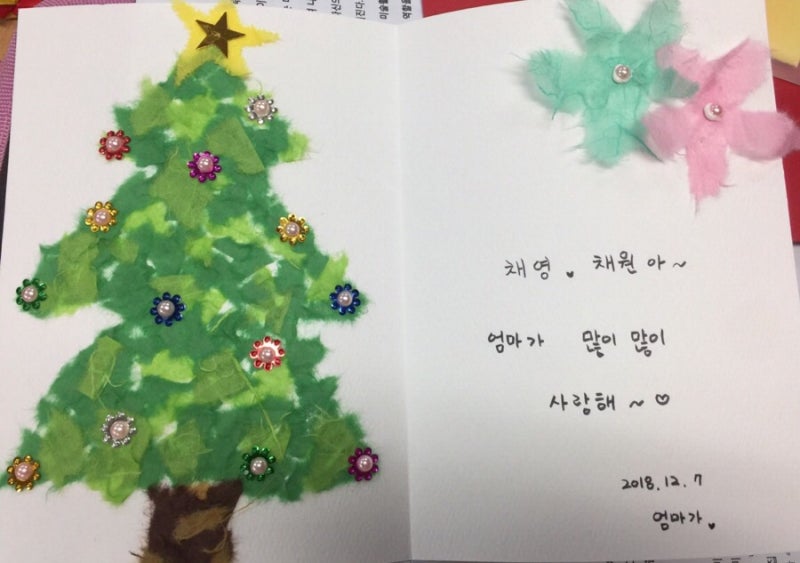 채영, 채원아~
엄마가 많이 많이
사랑해~♡
2018.12.7
엄마가,